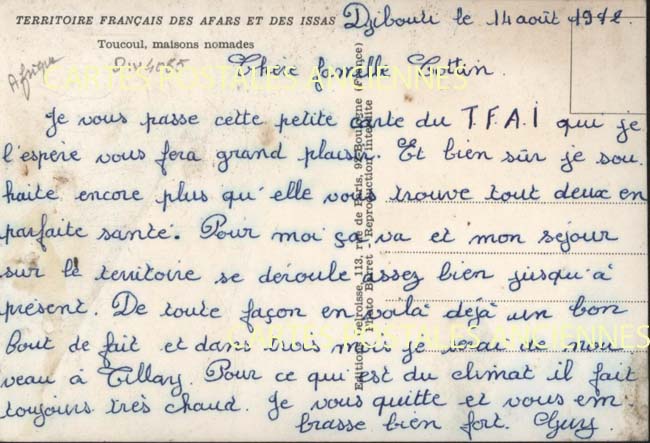 TERRITOIRE FRANÇAIS DES AFARS ET DES ISSAS
Toucoul, maisons nomades
Afrique
Djibouti le 14 août 1972.
Chère famille Cottin.
Je vous passe cette petite carte du T.F.A.I qui je
l'espère vous fera grand plaisir. Et bien sûr je sou
haite encore plus qu'elle vous trouve tout deux en
parfaite santé. Pour moi ça va et mon séjour
sur le territoire se déroule assez bien jusqu'à
présent. De toute façon en voilà déjà un bon
bout de fait et dans trois mois je serai de nou
veau à Tillay. Pour ce qui est du climat il fait
toujours très chaud. Je vous quitte et vous em
brasse bien fort. Guy.
Editions Delroisse, 113, rue de Paris, 92-Boulogne (France)
Photo Barret - Reproduction interdite
CARTES POSTALES ANCIENNES
CARTES POSTALES ANCIENNES